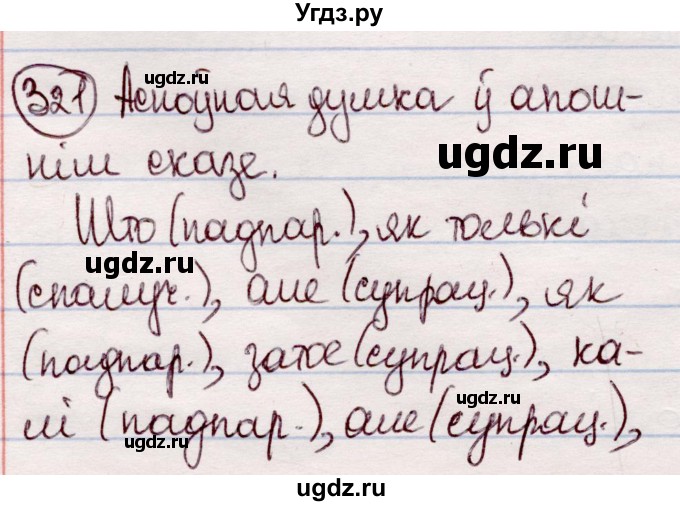 Угдз.ру
321 Асноўная думка ў апош-
нім сказе.
Што (падпар.), як толькі
(спалуч.), але (супрац.), як
(падпар.), затое (супрац.), ка-
лі (падпар.), але (супрац.),
ugdz.ru
ugdz.ru
ugdz.ru
ugdz.ru
ugdz.ru
ugdz.ru
ugdz.ru
ugdz.ru